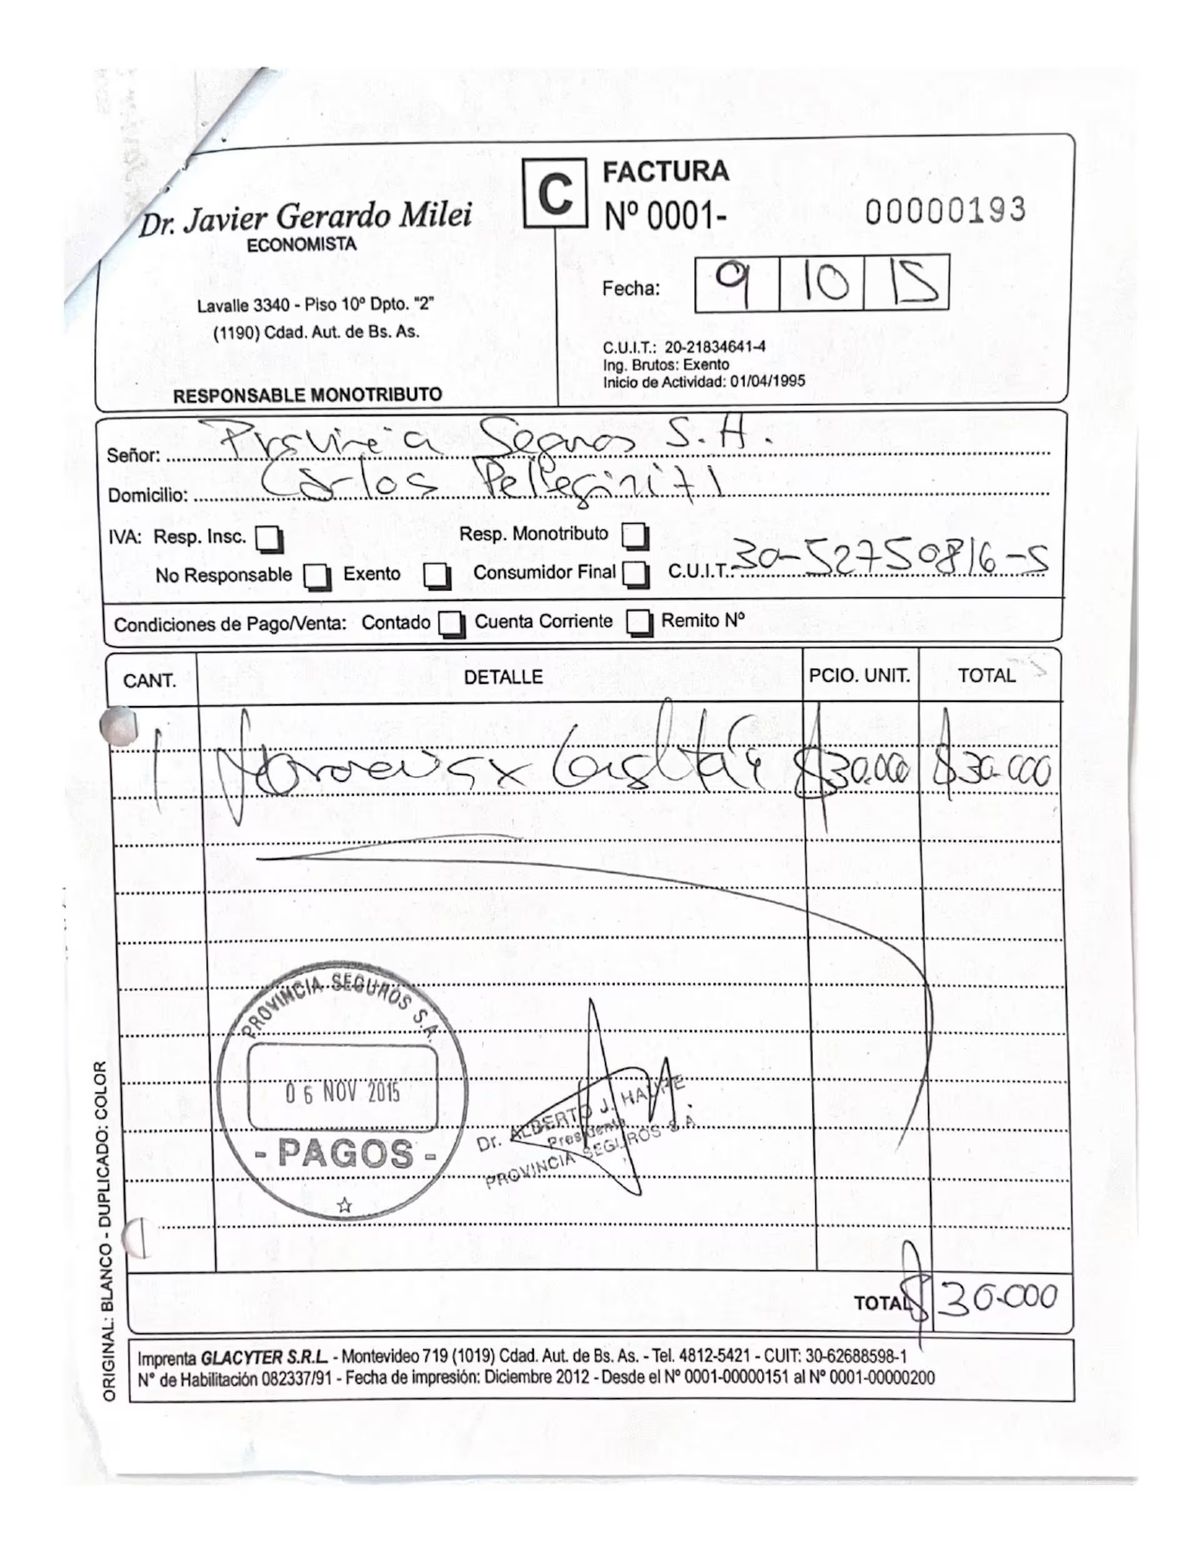 Dr. Javier Gerardo Milei
ECONOMISTA
Lavalle 3340 - Piso 10º Dpto. "2"
(1190) Cdad. Aut. de Bs. As.
RESPONSABLE MONOTRIBUTO
C
FACTURA
Nº 0001- 00000193
Fecha: 9 10 15
C.U.I.T.: 20-21834641-4
Ing. Brutos: Exento
Inicio de Actividad: 01/04/1995
Señor: Provincia Seguros S.A.
Domicilio: Carlos Pellegrini 71
IVA: Resp. Insc. Resp. Monotributo
No Responsable Exento Consumidor Final C.U.I.T.: 30-52750816-5
Condiciones de Pago/Venta: Contado Cuenta Corriente Remito Nº
CANT. DETALLE PCIO. UNIT. TOTAL
1 $30.000 $30.000
PROVINCIA SEGUROS S.A.
06 NOV 2015
- PAGOS -
Dr. ALBERTO J. HAURE
Presidente
PROVINCIA SEGUROS S.A.
TOTAL $30.000
Imprenta GLACYTER S.R.L. - Montevideo 719 (1019) Cdad. Aut. de Bs. As. - Tel. 4812-5421 - CUIT: 30-62688598-1
N° de Habilitación 082337/91 - Fecha de impresión: Diciembre 2012 - Desde el Nº 0001-00000151 al Nº 0001-00000200
ORIGINAL: BLANCO - DUPLICADO: COLOR